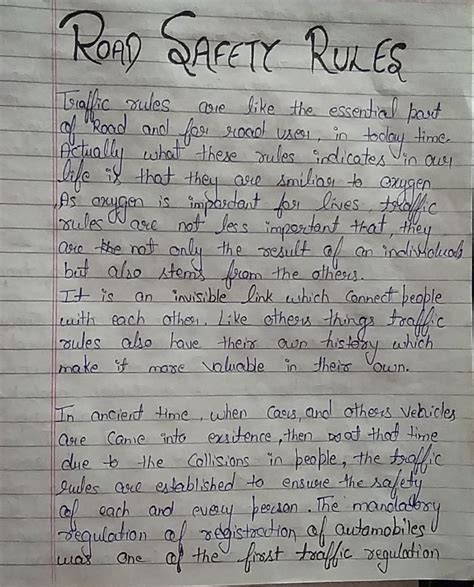 ROAD SAFETY RULES
Traffic rules are like the essential part
of Road and for road user, in today time.
Actually what these rules indicates in our
life is that they are smiliar to oxygen
As oxygen is important for lives, traffic
rules are not less important that, they
are the not only the result of an individuals
but also stems from the others.
It is an invisible link which connect people
with each other. Like others things traffic
rules also have their own history which
make it more valuable in their own.
In ancient time, when Cars, and others vehicles
are came into exsitence, then at that time
due to the Collisions in people, the traffic
rules are established to ensure the safety
of each and every person. The mandatory
regulation of registration of automobiles
was one of the first traffic regulation